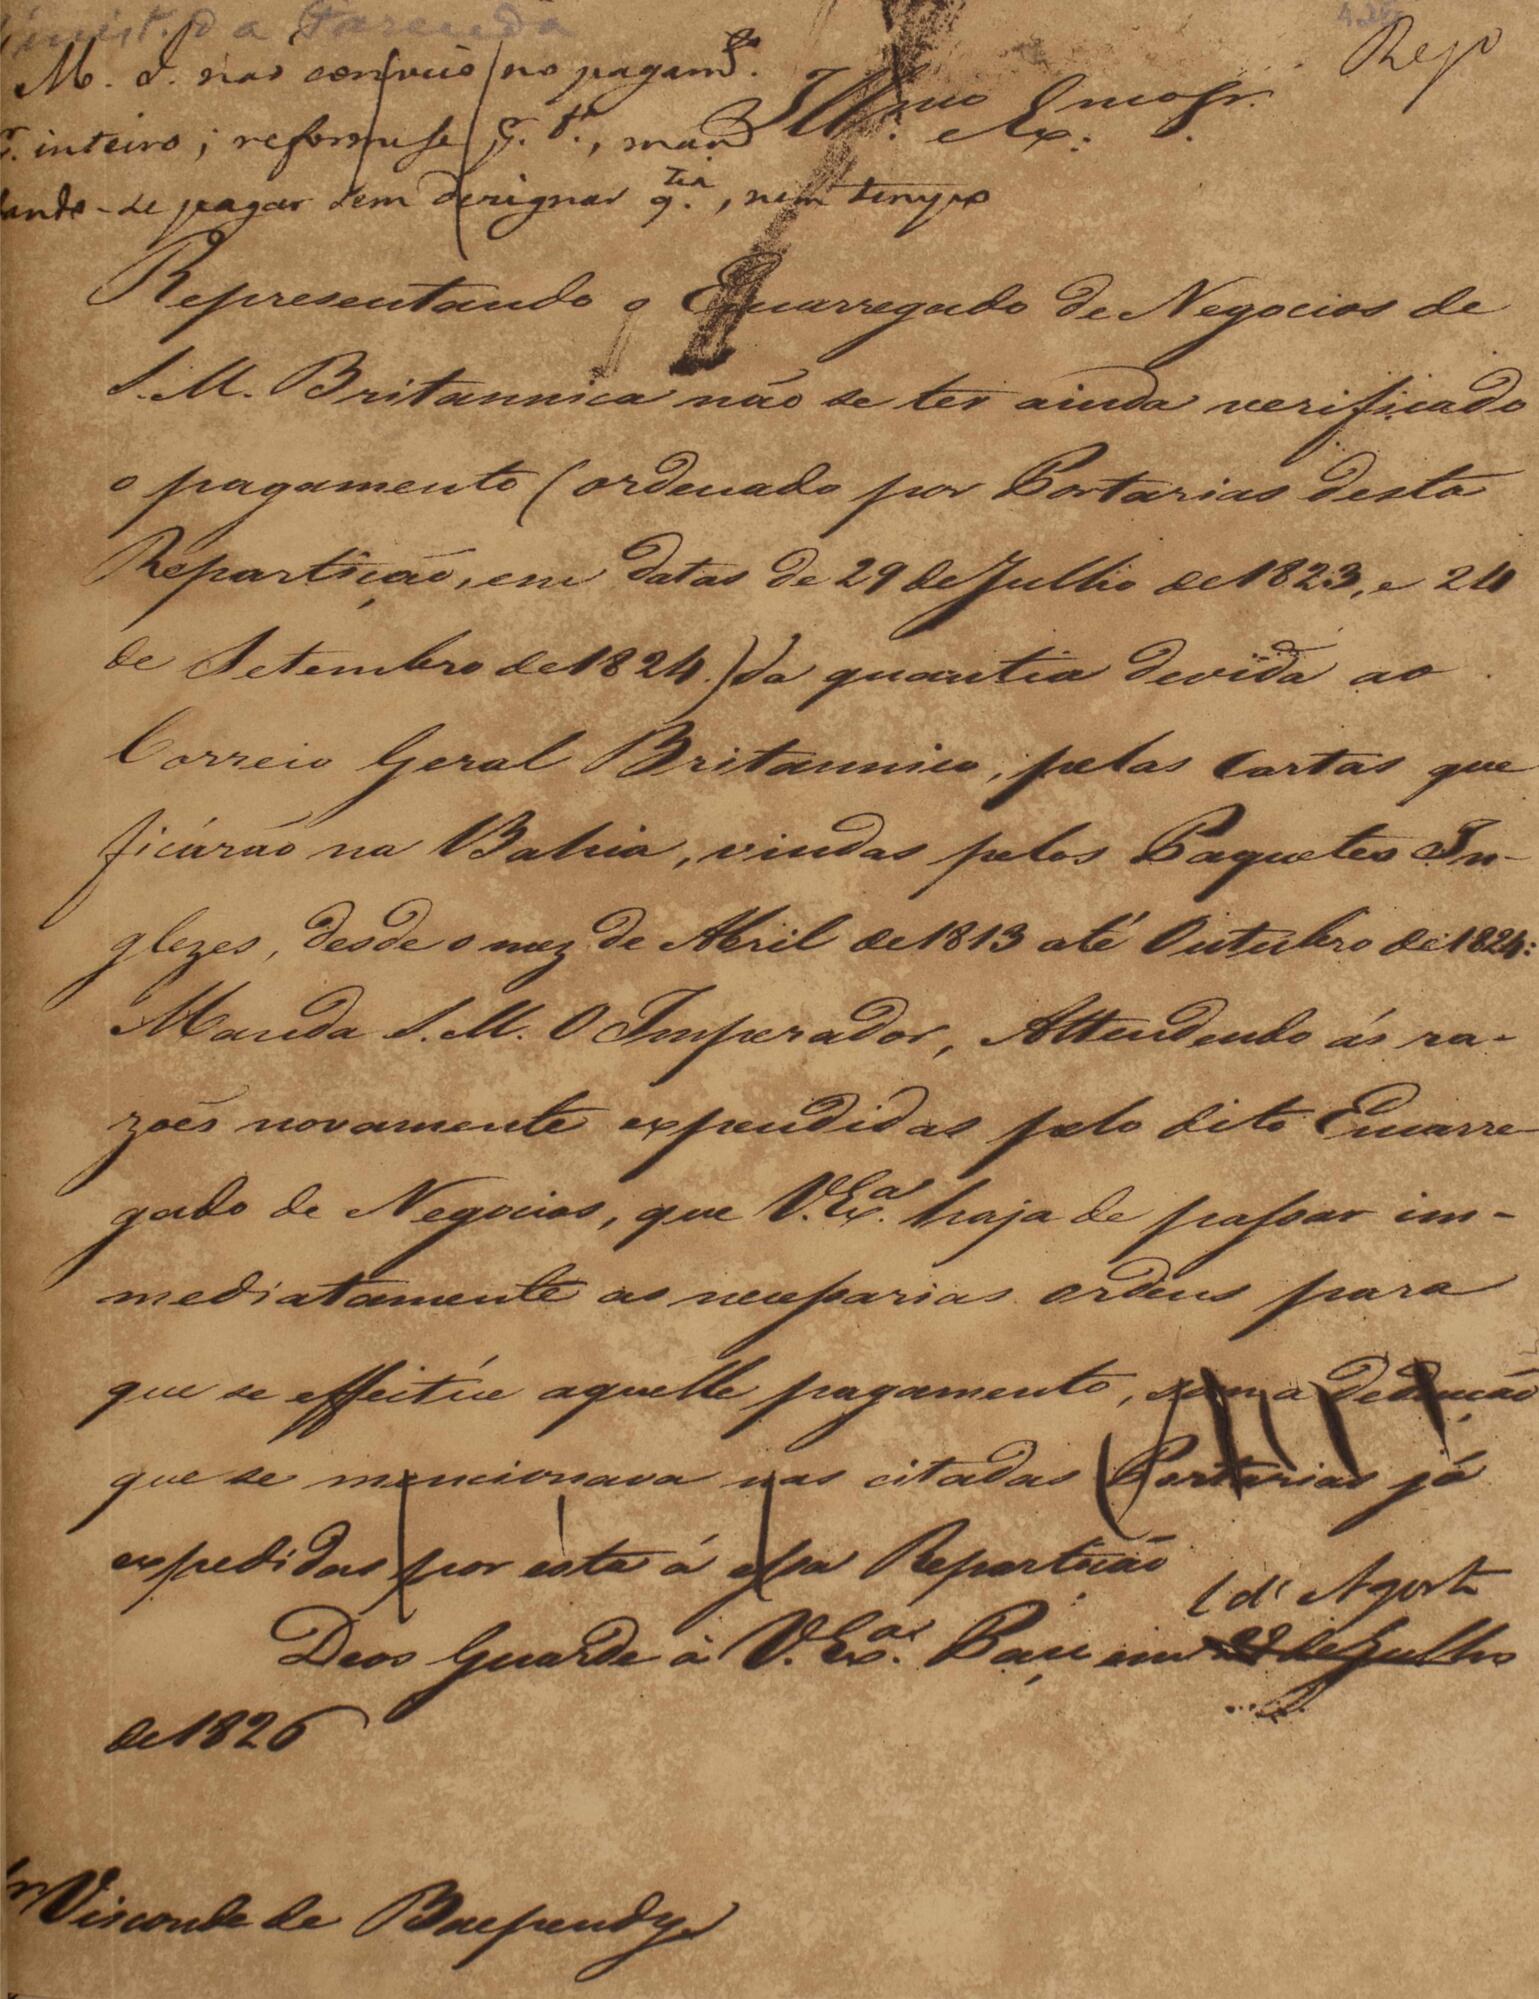 Minist. da Fazenda
Rep
M. I. não conveio no pagamto.
inteiro; reforme-se
dando-se pagar sem designar q.tia, nem tempo
Illmo. Exmo. Sr.
Representando o Encarregado de Negocios de
S. M. Britannica não se ter ainda verificado
o pagamento (ordenado por Portarias desta
Repartição, em datas de 29 de Julho de 1823, e 24
de Setembro de 1824.) da quantia devida ao
Correio Geral Britannico, pelas Cartas que
ficárão na Bahia, vindas pelos Paquetes In-
glezes, desde o mez de Abril de 1813 até Outubro de 1824:
Manda S. M. O Imperador, Attendendo ás ra-
zões novamente expendidas pelo dito Encarre-
gado de Negocios, que V. Exa. haja de passar im-
mediatamente as necessarias ordens para
que se effeitúe aquelle pagamento, com a deducção
que se mencionava nas citadas Portarias já
expedidas por esta á essa Repartição
1 d' Agosto
Deos Guarde á V. Exa. Paço em de Julho
de 1826
Sr. Visconde de Baependy